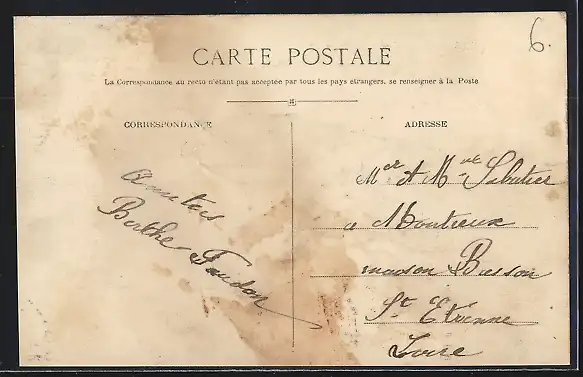 6.
CARTE POSTALE
La Correspondance au recto n'étant pas acceptée par tous les pays étrangers, se renseigner à la Poste
CORRESPONDANCE
ADRESSE
Amities
Berthe Faudon
Mer et Mve Sabatier
a Montreux
maison Busson
St Etienne
Loire